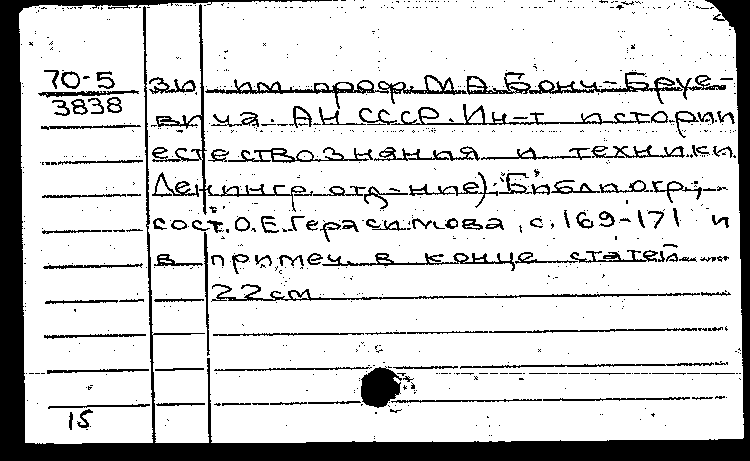 70-5 зи им. проф. М.А. Бонч-Бруе-
3838 вича. АН СССР. Ин-т истории
естествознания и техники
Ленингр. отд-ние). Библиогр.;
сост. О.Е. Герасимова, с. 169-171 и
в примеч. в конце статей
22 см
15